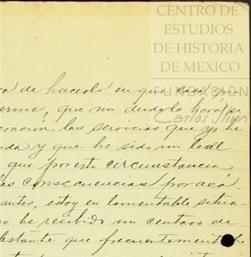 CENTRO DE
ESTUDIOS
DE HISTORIA
DE MEXICO
FUNDACIÓN
Carlos Slim
de hacerlo en que
que no dudo lo
los servicios que yo he
y que he sido un leal
que por esta circunstancia
las consecuencias por acá
antes, estoy en lamentable
no he recibido un centavo de
obstante que frecuentemente